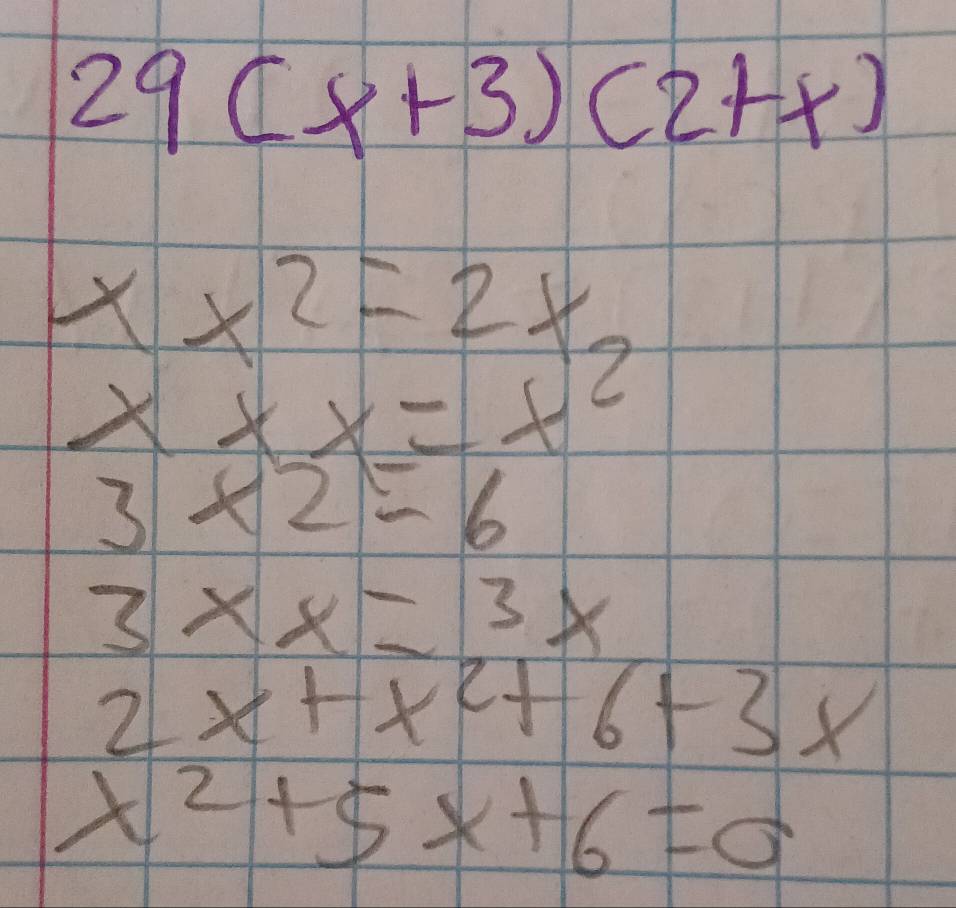 29 (x+3)(2+x)
x x 2 = 2x
x x x = x²
3 x 2 = 6
3 x x = 3x
2x+x²+6+3x
x²+5x+6=0